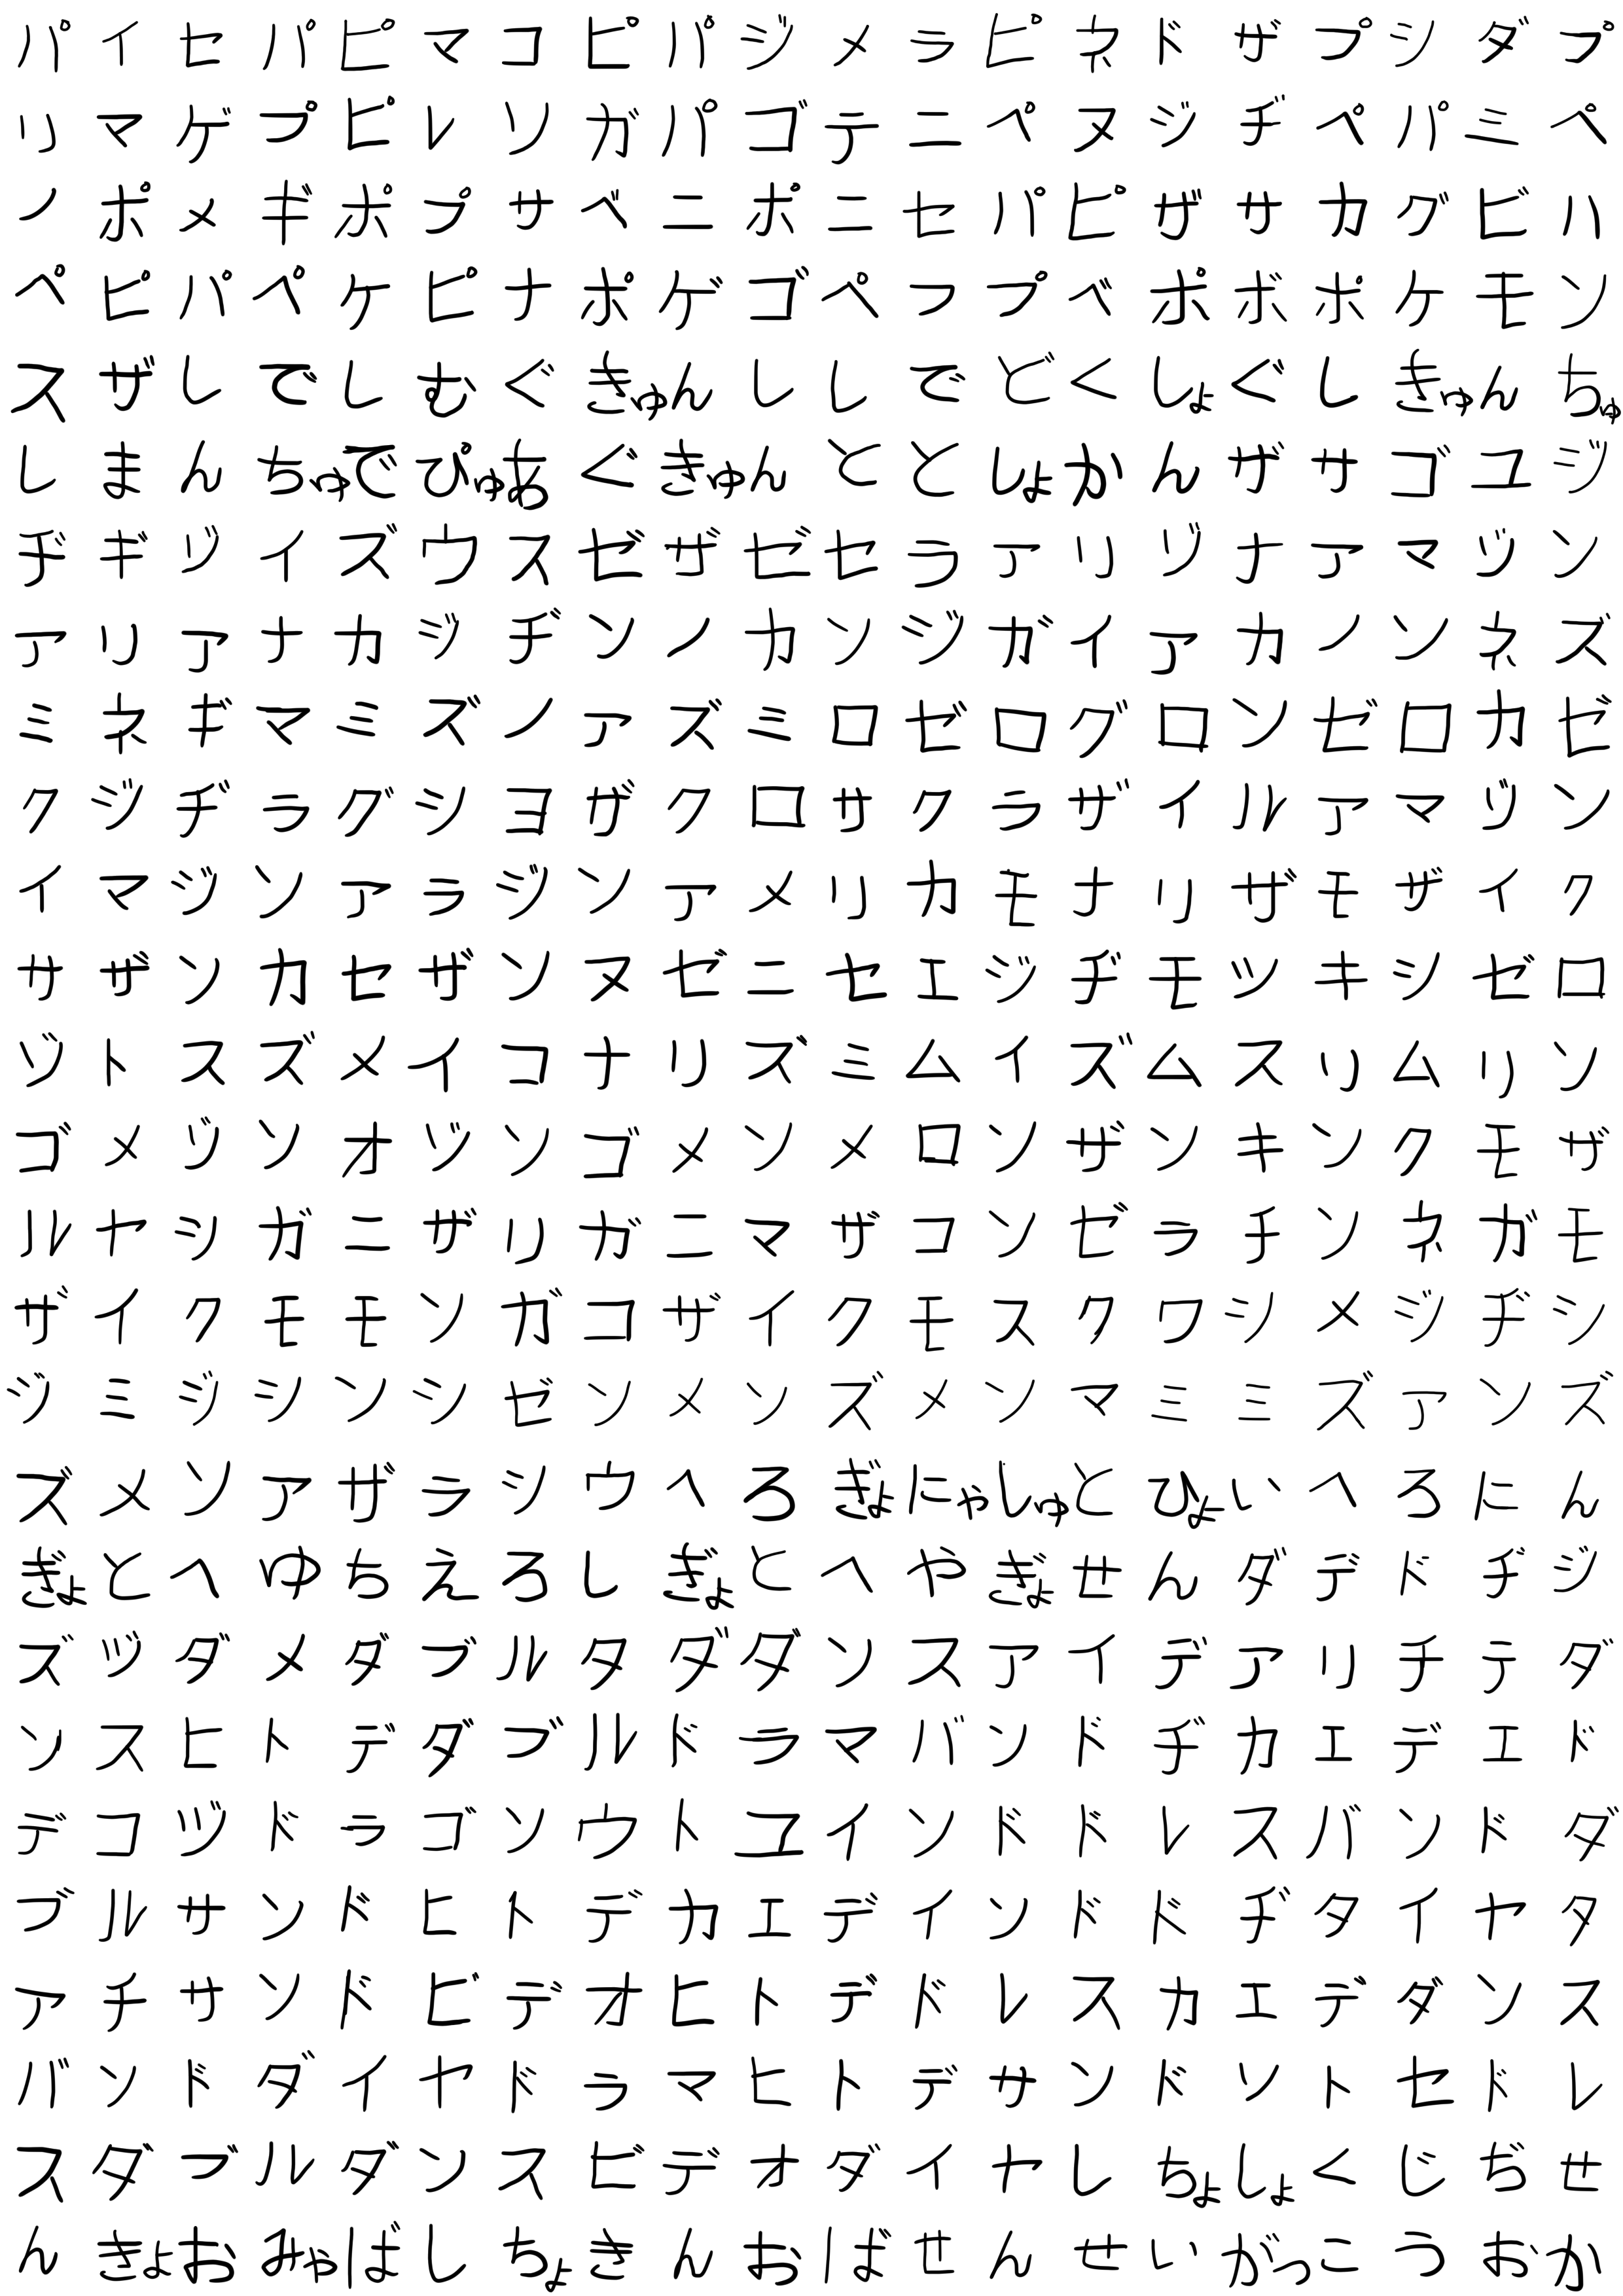 パイセパピマコピパジメラピネドザプシダプ
リマゲプピレソガパゴテニペヌジヂペパミペ
ノポメギポプサベニポニセパピザサカグビハ
ペピパペケピナポゲゴペフプベポボポケモン
スザしでしむぐきゅんししでどくしょぐしきゅんちゅ
しまんちゅでぴゅあぐきゅんととしょかんザサゴユジ
ヂギヅイズウスゼザゼセラアリゾナアマヅン
アリアナカジヂンノカンジガイアカノンネズ
ミネギマミズノアズミロゼログロンゼロカゼ
クジヂラグシヨザクロサクラザイルアマヅン
イマジンアラジンアメリカモナリザモザイク
サザンカセザンヌゼニセエジヂモツキシゼロ
ゾトスズメイコナリズミムイズムスリムリン
ゴメヅソオヅンゴメンメロンザンキンクモザ
ルヤシガニザリガニマザコンゼラチンネガモ
ザイクモモンガコザイクモスクワシメジヂシ
ジミジシンシゼンメンズメンマミミズアンズ
ズメソアザラシウへろぎょにゃしゅとひょいへろにん
ぎょとへゆちえろしぎょとへやぎょせんダデドヂジ
ズヅダメダブルタダダンスアイデアリチテダ
ンスヒトデダブルドラマバンドヂカエデエド
デコヅドラゴンウトユインドドレスバンドダ
ブルサンドヒトデカエデインドドヂタイヤタ
アチサンドビデオヒトデドレスカエデダンス
バンドダイヤドラマヒトデサンドソトセドレ
スダブルダンスビデオダイヤしちょしょくじぢせ
んきょおみゃばしちょきんおばせんせいがっこうおか